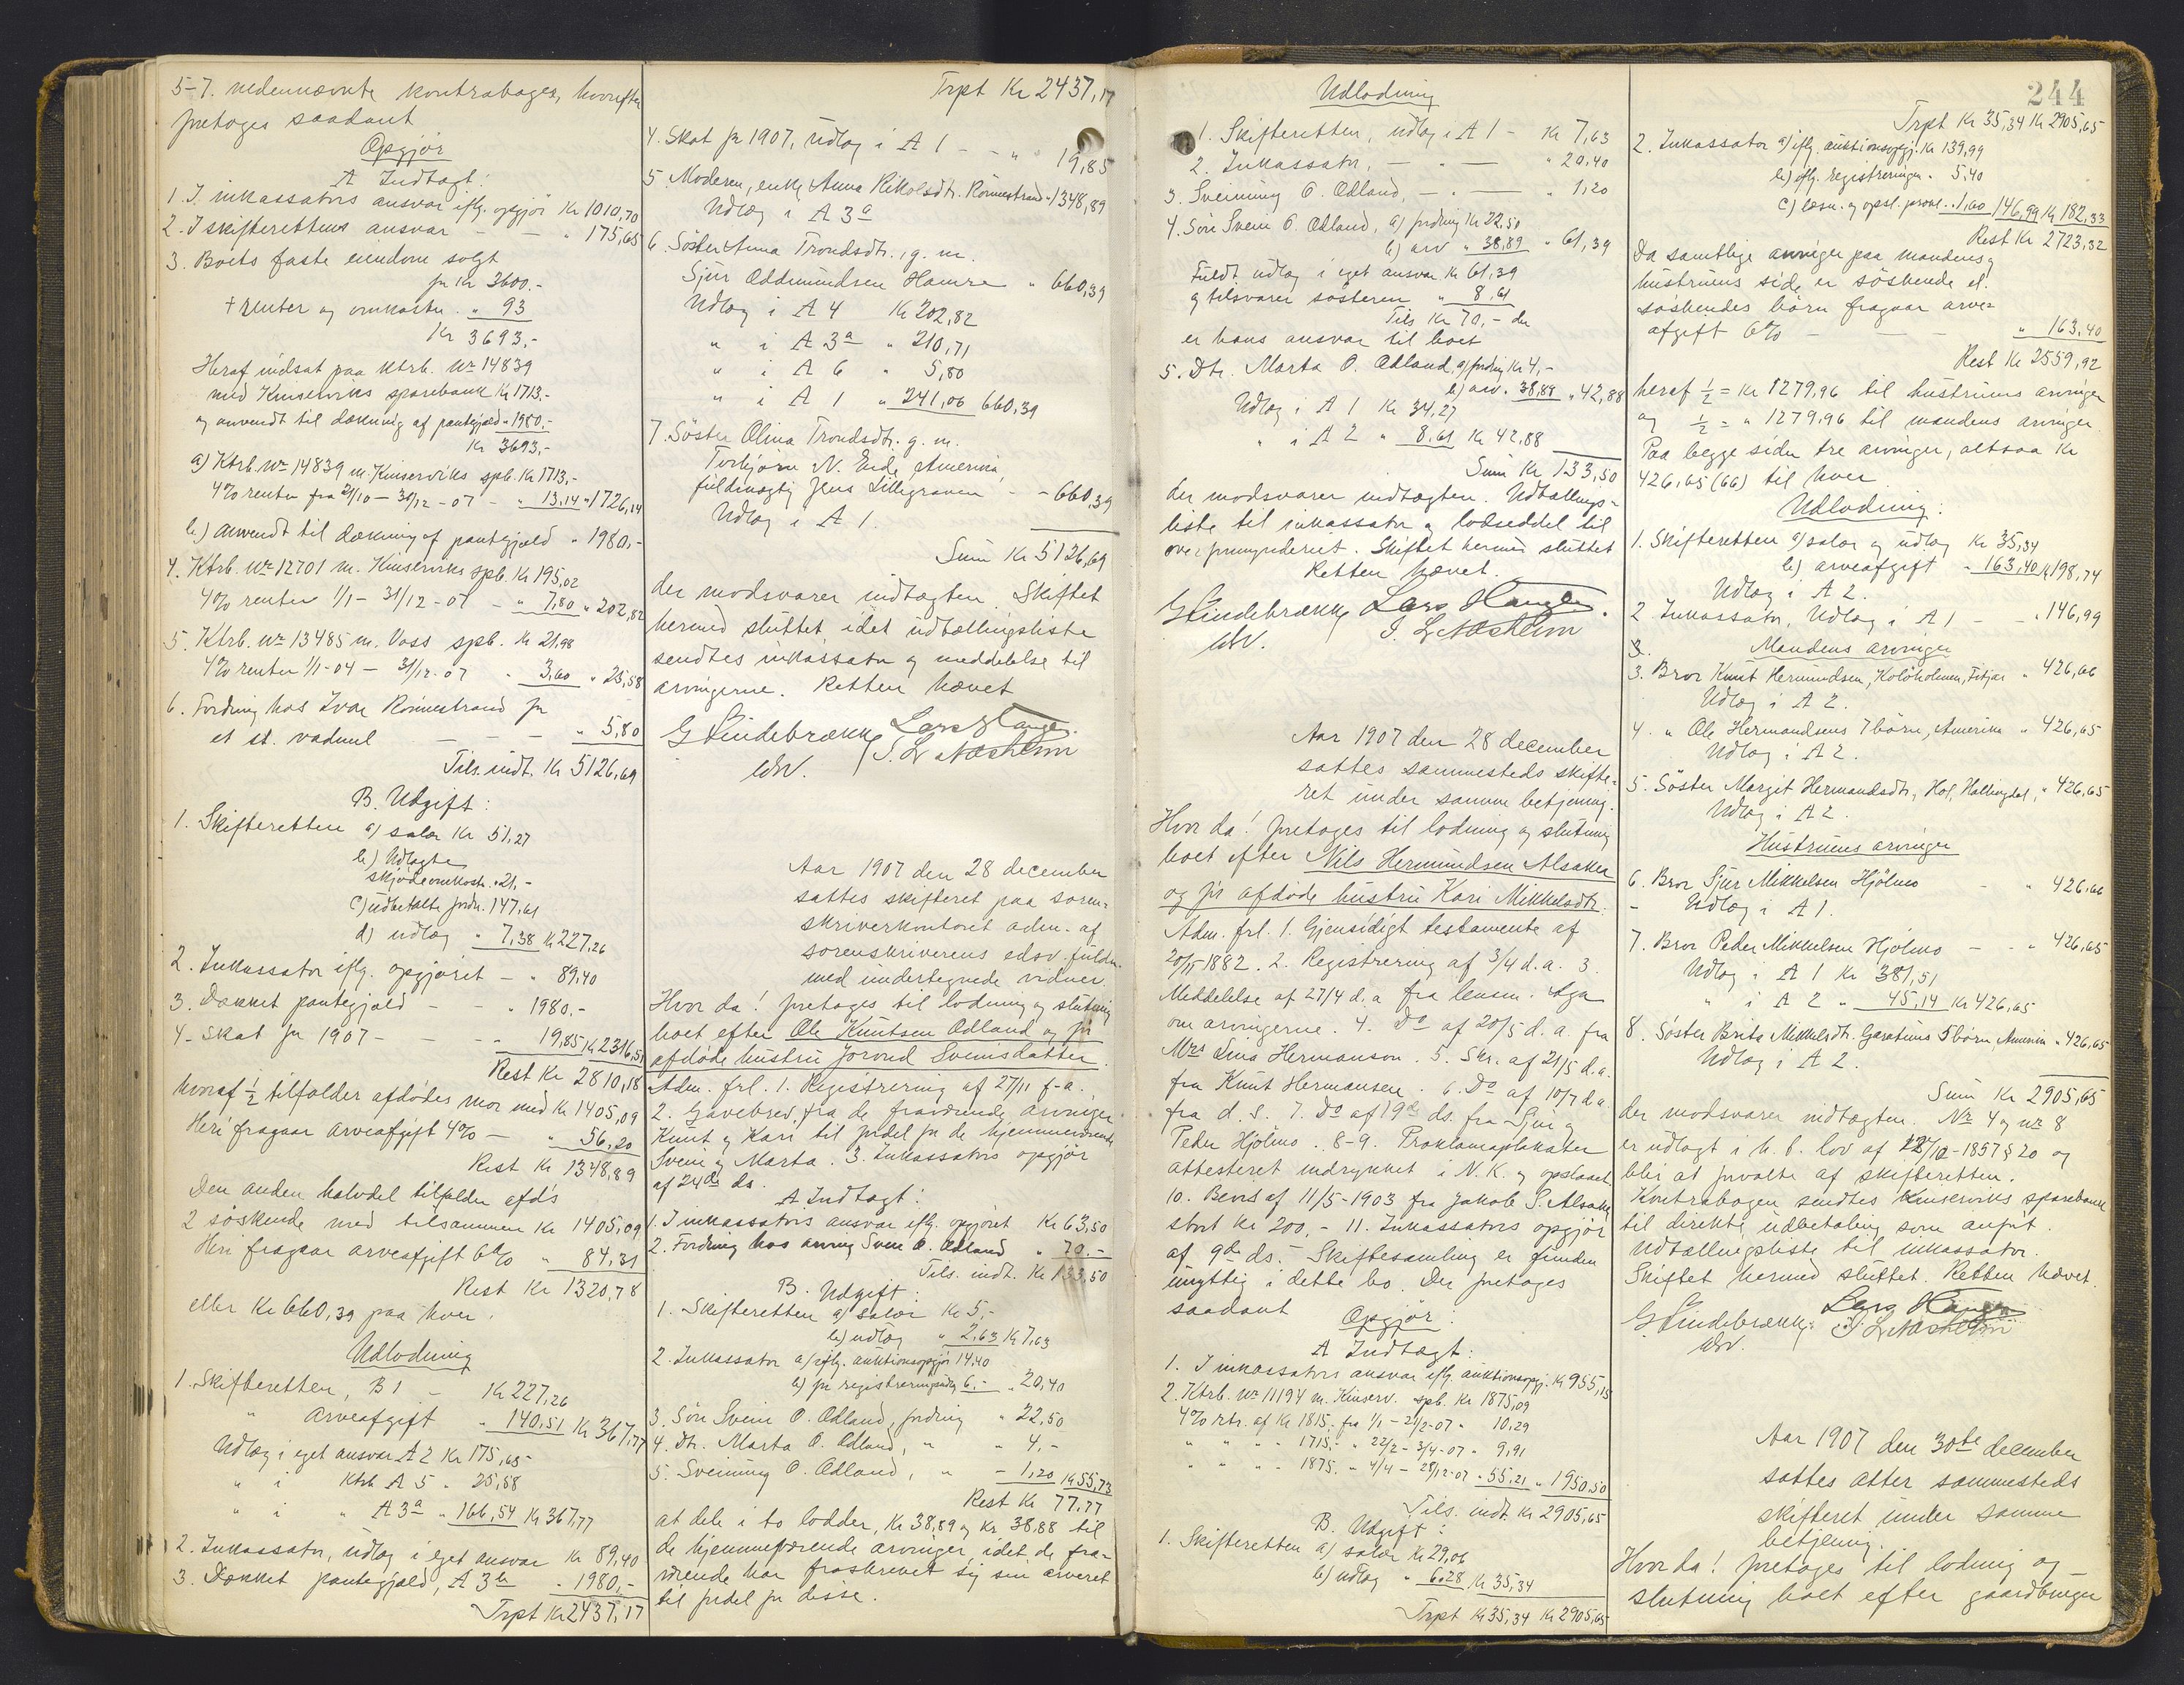 5-7. nedennævnte kontrabøger, hvorefter
foretoges saadant
Opgjør
A Indtægt:
1. I inkassators ansvar iflg. opgjør Kr 1010,70
2. I skifterettens ansvar - - " 175,65
3. Boets faste eiendom solgt
for Kr 3600.-
+ renter og omkostn. " 93
Kr 3693.-
Heraf indsat paa Ktrb. No 14839
med Kinserviks sparebank Kr 1713.-
og anvendt til dækning af pantegjæld " 1980,-
Kr 3693,-
a) Ktrb. No 14839 m. Kinserviks spb. Kr 1713,-
4% renter fra 21/10 - 31/12 - 07 - " 13,14 " 1726,14
b) anvendt til dækning af pantegjæld " 1980,-
4. Ktrb. No 12701 m. Kinserviks spb. Kr 195,02
4% renter 1/1 - 31/12 - 07 - " 7,80 " 202,82
5. Ktrb. No 13485 m. Voss spb. Kr 21,98
4% renter 1/1-04 - 31/12-07 " 3,60 " 25,58
6. Fordring hos Ivar Rönnestrand for
et st. vadmel - - - " 5,80
Tils. indt. Kr 5126,69
B. Udgift:
1. Skifteretten a) salær Kr 51,27
b) Udlagte
skjødeomkostn. " 21,-
c) udbetalte fordr. 147,61
d) udlæg " 7,38 Kr 227,26
2. Inkassator iflg. opgjøret - " 89,40
3. Dækket pantegjæld - - " 1980.-
4. Skat for 1907 - - - " 19,85 Kr 2316,51
Rest Kr 2810,18
hvoraf ½ tilfalder afdödes mor med Kr 1405,09
Heri fragaar arveafgift 4% - " 56,20
Rest Kr 1348,89
Den anden halvdel tilfalder afd's
2 söskende med tilsammen Kr 1405,09
Heri fragaar arveafgift 6% " 84,31
Rest Kr 1320,78
eller Kr 660,39 paa hver.
Udlodning
1. Skifteretten, B 1 - Kr 227,26
" Arveafgift " 140,51 Kr 367,77
Udlæg i eget ansvar A 2 Kr 175,65
" i Ktrb A 5 " 25,58
" i " A 3a " 166,54 Kr 367,77
2. Inkassator, udlæg i eget ansvar Kr 89,40
3. Dækket pantegjæld, A 3b " 1980,-
Trpt Kr 2437,17
Trpt Kr 2437,17
4. Skat for 1907, Udlæg i A 1 - - " " 19,85
5. Moderen, enke Anna Nikolsdtr. Rönnestrand " 1348,89
Udlæg i A 3a
6. Söster Anna Trondsdtr. g. m.
Sjur Oddmundsen Hamre " 660,39
Udlæg i A 4 Kr 202,82
" i A 3a " 210,71
" i A 6 " 5,80
" i A 1 " 241,06 660,39
7. Söster Olina Trondsdtr. g. m.
Torbjörn N. Eide, Amerika,
fuldmægtig Jens Lillegraven - - 660,39
Udlæg i A 1.
Sum Kr 5126,69
der modsvarer indtægten. Skiftet
hermed sluttet, idet udtællingsliste
sendtes inkassator og meddelelse til
arvingerne. Retten hævet
G Lindebrække Lars Hauge
edsv. S. L. Næsheim
Aar 1907 den 28 december
sattes skifteret paa soren-
skriverkontoret adm. af
sorenskriverens edsv. fuldm.
med undertegnede vidner.
Hvor da! foretoges til lodning og slutning
boet efter Ole Knutsen Ødland og før
afdøde hustru Jorond Sveinsdatter.
Adm. frl. 1. Registrering af 27/11 f.a.
2. Gavebrev fra de fraværende arvinger
Knut og Kari til fordel for de hjemmeværende
Svein og Marta. 3. Inkassators opgjør
af 24de ds.
A Indtægt:
1. I inkassators ansvar iflg. opgjöret Kr 63,50
2. Fordring hos arving Svein O. Ødland " 70.-
Tils. indt. Kr 133,50
B. Udgift:
1. Skifteretten a) salær Kr 5,-
b) udlæg " 2,63 Kr 7,63
2. Inkassator a) iflg. auktionsopgjör 14,40
b) for registreringsudg. 6.- " 20,40
3. Sön Svein O. Ødland, fordring " 22,50
4. Dtr. Marta O. Ødland, " " 4,-
5. Sveinung O. Ødland, " - 1,20 Kr 55,73
Rest Kr 77,77
at dele i to lodder, Kr 38,89 og Kr 38,88 til
de hjemmeværende arvinger, idet de fra-
værende har fraskrevet sig sin arveret
til fordel for disse.
Udlodning
1. Skifteretten, udlæg i A 1 - Kr 7,63
2. Inkassator, - " - " 20,40
3. Sveinung O. Ødland, - " - " 1,20
4. Sön Svein O. Ødland, a) fordring Kr 22,50
b) arv " 38,89 " 61,39
Fuldt udlæg i eget ansvar Kr 61,39
og tilsvarer søsteren " 8,61
Tils. Kr 70,- der
er hans ansvar til boet
5. Dtr. Marta O. Ødland, a) fordring Kr 4,-
b) arv " 38,88 " 42,88
Udlæg i A 1 Kr 34,27
" i A 2 " 8,61 Kr 42,88
Sum Kr 133,50
der modsvarer indtægten. Udtællings-
liste til inkassator og lodseddel til
overformynderiet. Skiftet hermed sluttet
Retten hævet.
G Lindebrække Lars Hauge
edsv. S. L. Næsheim
Aar 1907 den 28 december
sattes sammesteds skifte-
ret under samme betjening.
Hvor da! foretoges til lodning og slutning
boet efter Nils Hermundsen Alsaker
og før afdöde hustru Kari Mikkelsdtr.
Adm. frl. 1. Gjensidigt testamente af
20/11 1882. 2. Registrering af 3/4 d.a. 3.
Meddelelse af 27/4 d.a fra lensm. Aga
om arvingerne. 4. Do af 20/5 d.a. fra
Mrs Lina Hermanson. 5. Skr. af 21/5 d.a.
fra Knut Hermansen. 6. Do af 10/7 d.a
fra d. s. 7. Do af 19de ds. fra Sjur og
Peder Hjölmo. 8-9. Proklamaplakater
attesteret indrykket i N.K. og opslaaet
10. Bevis af 11/5-1903 fra Jakob S. Alsaker
stort Kr 200,- 11. Inkassators opgjør
af 9de ds. - Skiftesamling er funden
unyttig i dette bo. Der foretoges
saadant Opgjør:
A Indtægt:
1. I inkassators ansvar iflg. auktionsopgj. Kr 955,15
2. Ktrb. No 11194 m. Kinserv. spb. Kr 1875,09
4% rtr. af Kr 1815,- fra 1/1 - 21/2-07 " 10,29
" " " " 1715,- " 22/2 - 3/4-07 " 9,91
" " " " 1875.- " 4/4 - 28/12-07 " 55,21 " 1950.50
Tils. indt. Kr 2905,65
B. Udgift:
1. Skifteretten a) salær Kr 29,06
b) udlæg " 6,28 Kr 35,34
Trpt Kr 35,34 Kr 2905,65
244
Trpt Kr 35,34 Kr 2905,65
2. Inkassator a) iflg. auktionsopgj. Kr 139,99
b) iflg. registreringen " 5,40
c) læsn. og opsl. prokl. " 1,60 146,99 Kr 182,33
Rest Kr 2723,32
Da samtlige arvinger paa mandens og
hustruens side er söskende el.
söskendes börn fragaar arve-
afgift 6% - - - " 163,40
Rest Kr 2559,92
heraf ½ = Kr 1279,96 til hustruens arvinger
og ½ = " 1279,96 til mandens arvinger.
Paa begge sider tre arvinger, altsaa Kr
426,65 (66) til hver
Udlodning:
1. Skifteretten a) salær og udlæg Kr 35,34
b) arveafgift " 163,40 Kr 198,74
Udlæg i A 2.
2 Inkassator, Udlæg i A 1 - - " 146,99
3. Mandens arvinger
3. Bror Knut Hermundsen, Kolöholmen, Fitjar " 426,66
Udlæg i A 2.
4. " Ole Hermandsens 7 börn, Amerika " 426,65
Udlæg i A 2.
5. Söster Margit Hermandsdtr, Hol, Hallingdal, " 426,65
Udlæg i A 2.
Hustruens arvinger
6. Bror Sjur Mikkelsen Hjölmo - " 426,66
- Udlæg i A 1.
7. Bror Peder Mikkelsen Hjölmo - - " 426,65
Udlæg i A 1 Kr 381,51
" i A 2 " 45,14 Kr 426,65
8. Söster Brita Mikkelsdtr. Garatuns 5 börn, Amerika " 426,65
Udlæg i A 2.
Sum Kr 2905,65
der modsvarer indtægten. No 4 og no 8
er udlagt i h. t. lov af 12/10-1857 § 20 og
blir at forvalte af skifteretten.
Kontrabogen sendtes Kinserviks sparebank
til direkte udbetaling som anført.
Udtællingsliste til inkassator.
Skiftet hermed sluttet. Retten hævet.
G Lindebrække Lars Hauge
edsv. S. L. Næsheim
Aar 1907 den 30te december
sattes atter sammesteds
skifteret under samme
betjening.
Hvor da! foretoges til lodning og
slutning boet efter gaardbruger